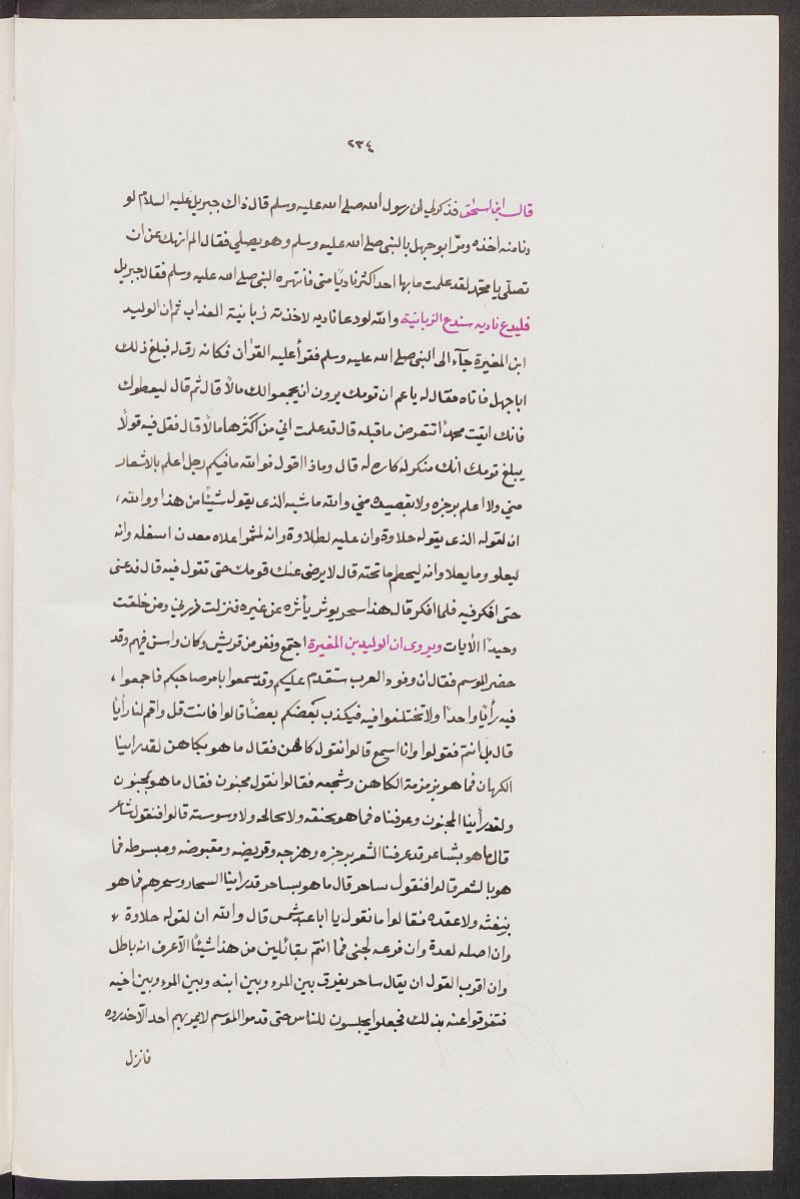 ٢٣٤
قال ابن اسحٰق فذكر لي ان رسول الله صلى الله عليه وسلم قال ذاك جبريل عليه السلام لو
دنا منه اخذه ومرّ ابو جهل بالنبى صلى الله عليه وسلم وهو يصلي فقال الم انهك عن ان
تصلّى يا محمّد لقد علمت ما بها احد اكثر ناديًا منى فانتهره النبى صلى الله عليه وسلم فقال جبريل
فليدع ناديه سندع الزبانية والله لو دعا ناديه لاخذته زبانية العذاب ثم ان الوليد
ابن المغيرة جآء الى النبى صلى الله عليه وسلم فقرأ عليه القرٰان فكانه رق له فبلغ ذلك
ابا جهل فاتاه فقال له يا عم ان قومك يرون ان يجمعوا لك مالًا قال ثم قال ليعطوك
فانك اتيت محمدًا تتعرض ما قبله قال قد علمت اني من اكثرها مالًا قال فقل فيه قولًا
يبلغ قومك انك منكر له كاره له قال وماذا اقول فوالله ما فيكم رجل اعلم بالاشعار
مني ولا اعلم برجزه ولا بقصيده مني والله ما شبه الذى يقول شيئًا من هذا ووالله،
ان لقوله الذى يقوله حلاوة وان عليه لطلاوة وانه لمثمر اعلاه معدن اسفله وانه
ليعلو وما يعلا وانه ليحطم ما تحته قال لا يرضى عنك قومك حتى تقول فيه قال فدعنى
حتى افكر فيه فلما افكر قال هذا سحر يوثر يأثره عن غيره فنزلت ذرني ومن خلقت
وحيدًا الٰايات ويروى ان الوليد بن المغيرة اجتمع ونفر من قريش وكان واسن فيهم وقد
حضر الموسم فقال ان وفود العرب ستقدم عليكم وقد سمعوا بامر صاحبكم فاجمعوا،
فيه رأيًا واحدًا ولا تختلفوا فيه فيكذب بعضكم بعضًا قالوا فانت قل واقم لنا رأيًا
قال بل انتم فقولوا وانا اسمع قالوا نقول كاهن فقال ما هو بكاهن لقد راينا
الكهان فما هو بزمزمة الكاهن وسجعه فقالوا نقول مجنون فقال ما هو بمجنون
ولقد رأينا المجنون وعرفناه فما هو بخنقه ولا بحالجه ولا وسوسته قالوا فنقول شاعر
قال ما هو بشاعر قد عرفنا الشعر برجزه وهزجه وقريضه ومقبوضه ومبسوطه فما
هو بالشعر قالوا فنقول ساحر قال ما هو بساحر قد راينا السحار وسحرهم فما هو
بنفثه ولا عقده فقالوا ما نقول يا ابا عبد شمس قال والله ان لقوله حلاوة
وان اصله لعدة وان فرعه لجنى فما انتم بقائلين من هذا شيئًا الّا عرف انه باطل
وان اقرب القول ان يقال ساحر يفرق بين المرء وبين ابنه وبين المرء وبين اخيه
فتفرقوا عنه بذلك فجعلوا يجلسون للناس حتى قدموا الموسم لا يمر بهم احد الّا حذروه
فانزل